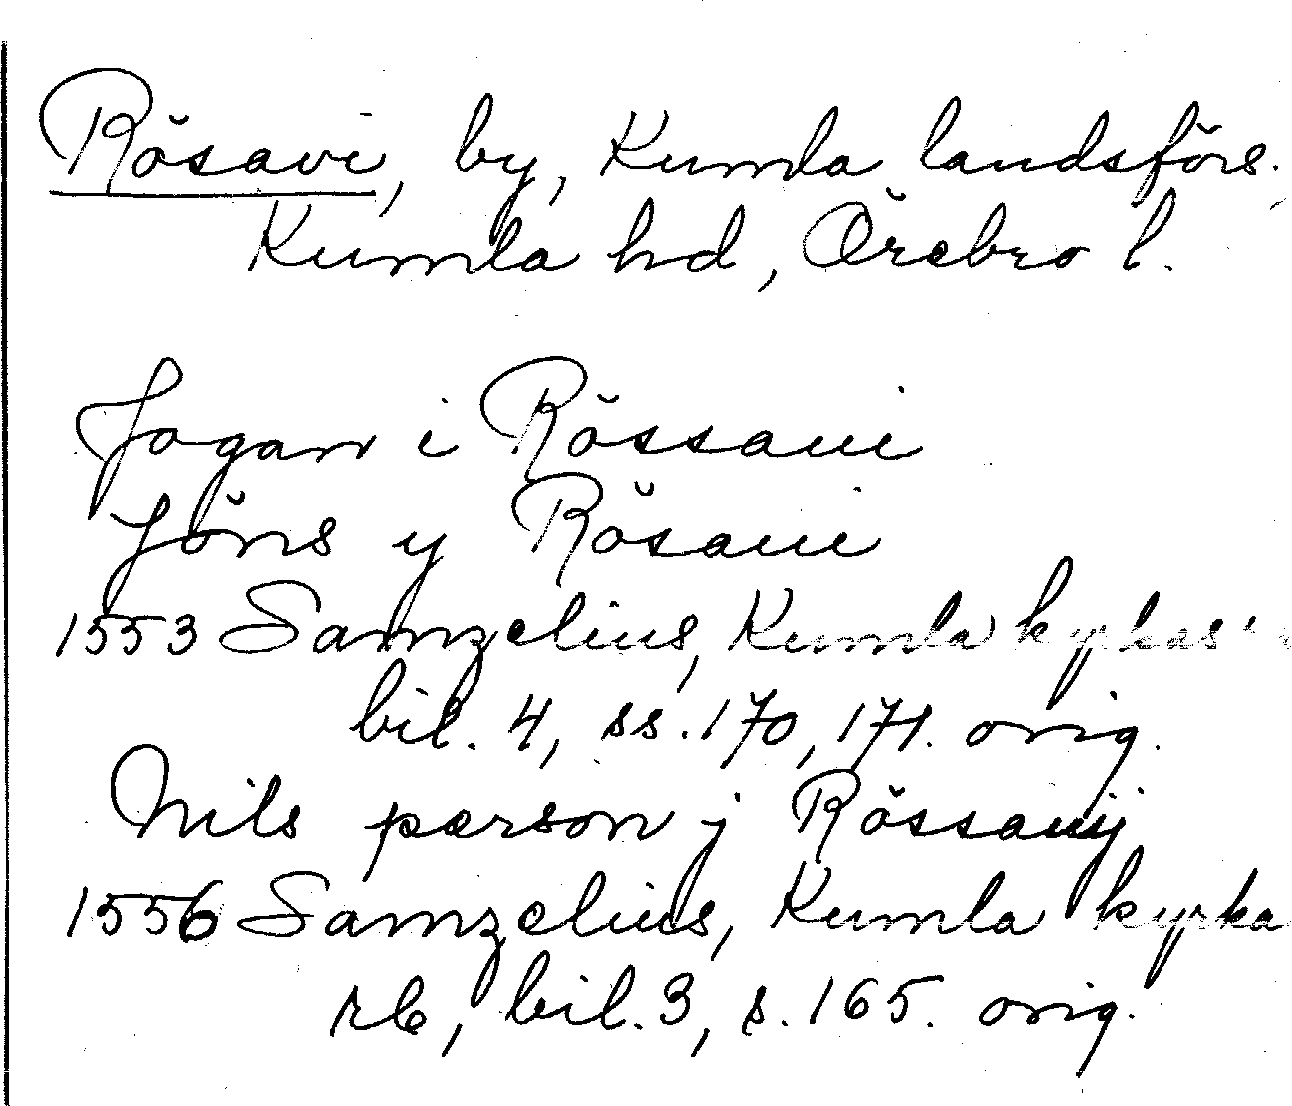 Rösavi, by, Kumla landsförs.
Kumla hd, Örebro l.
Jogan i Rössaui
Jöns y Rösaui
1553 Samzelius, Kumla kyrkas
bil. 4, ss. 170, 171. orig.
Nils pærson j Rössauij
1556 Samzelius, Kumla kyrka
rb, bil. 3, s. 165. orig.